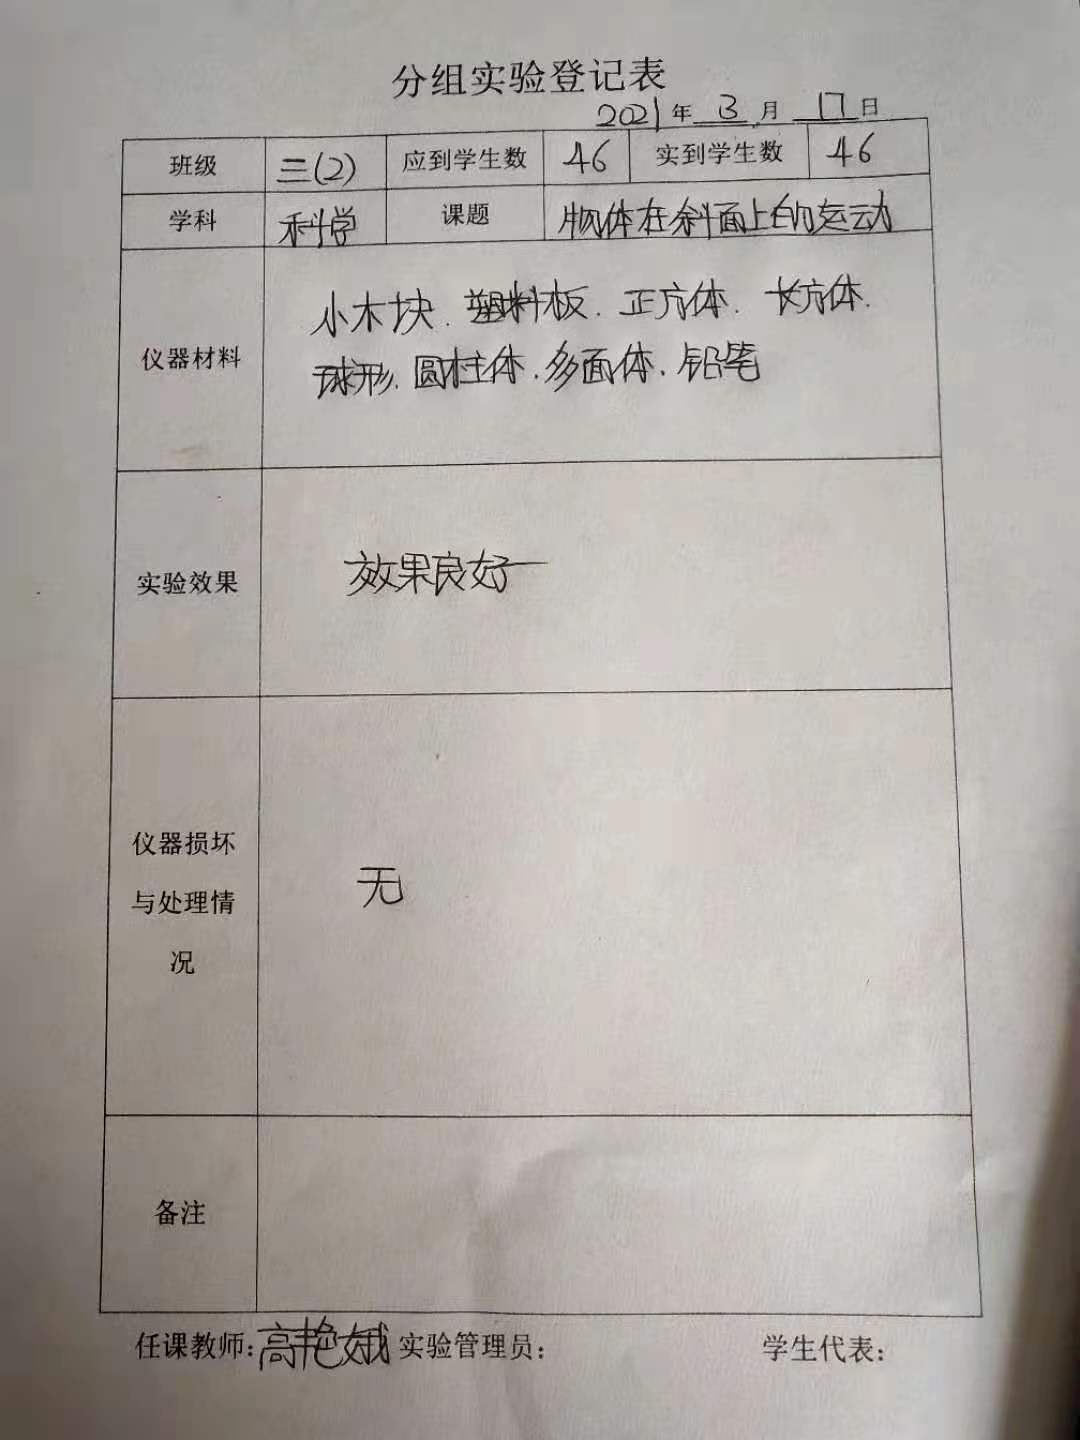 分组实验登记表
2021年 3 月 17日
班级 三(2) 应到学生数 46 实到学生数 46
学科 科学 课题 物体在斜面上的运动
仪器材料 小木块.塑料板.正方体.长方体.
球形.圆柱体.多面体.铅笔
实验效果 效果良好
仪器损坏
与处理情
况
无
备注
任课教师:高艳娥 实验管理员: 学生代表: